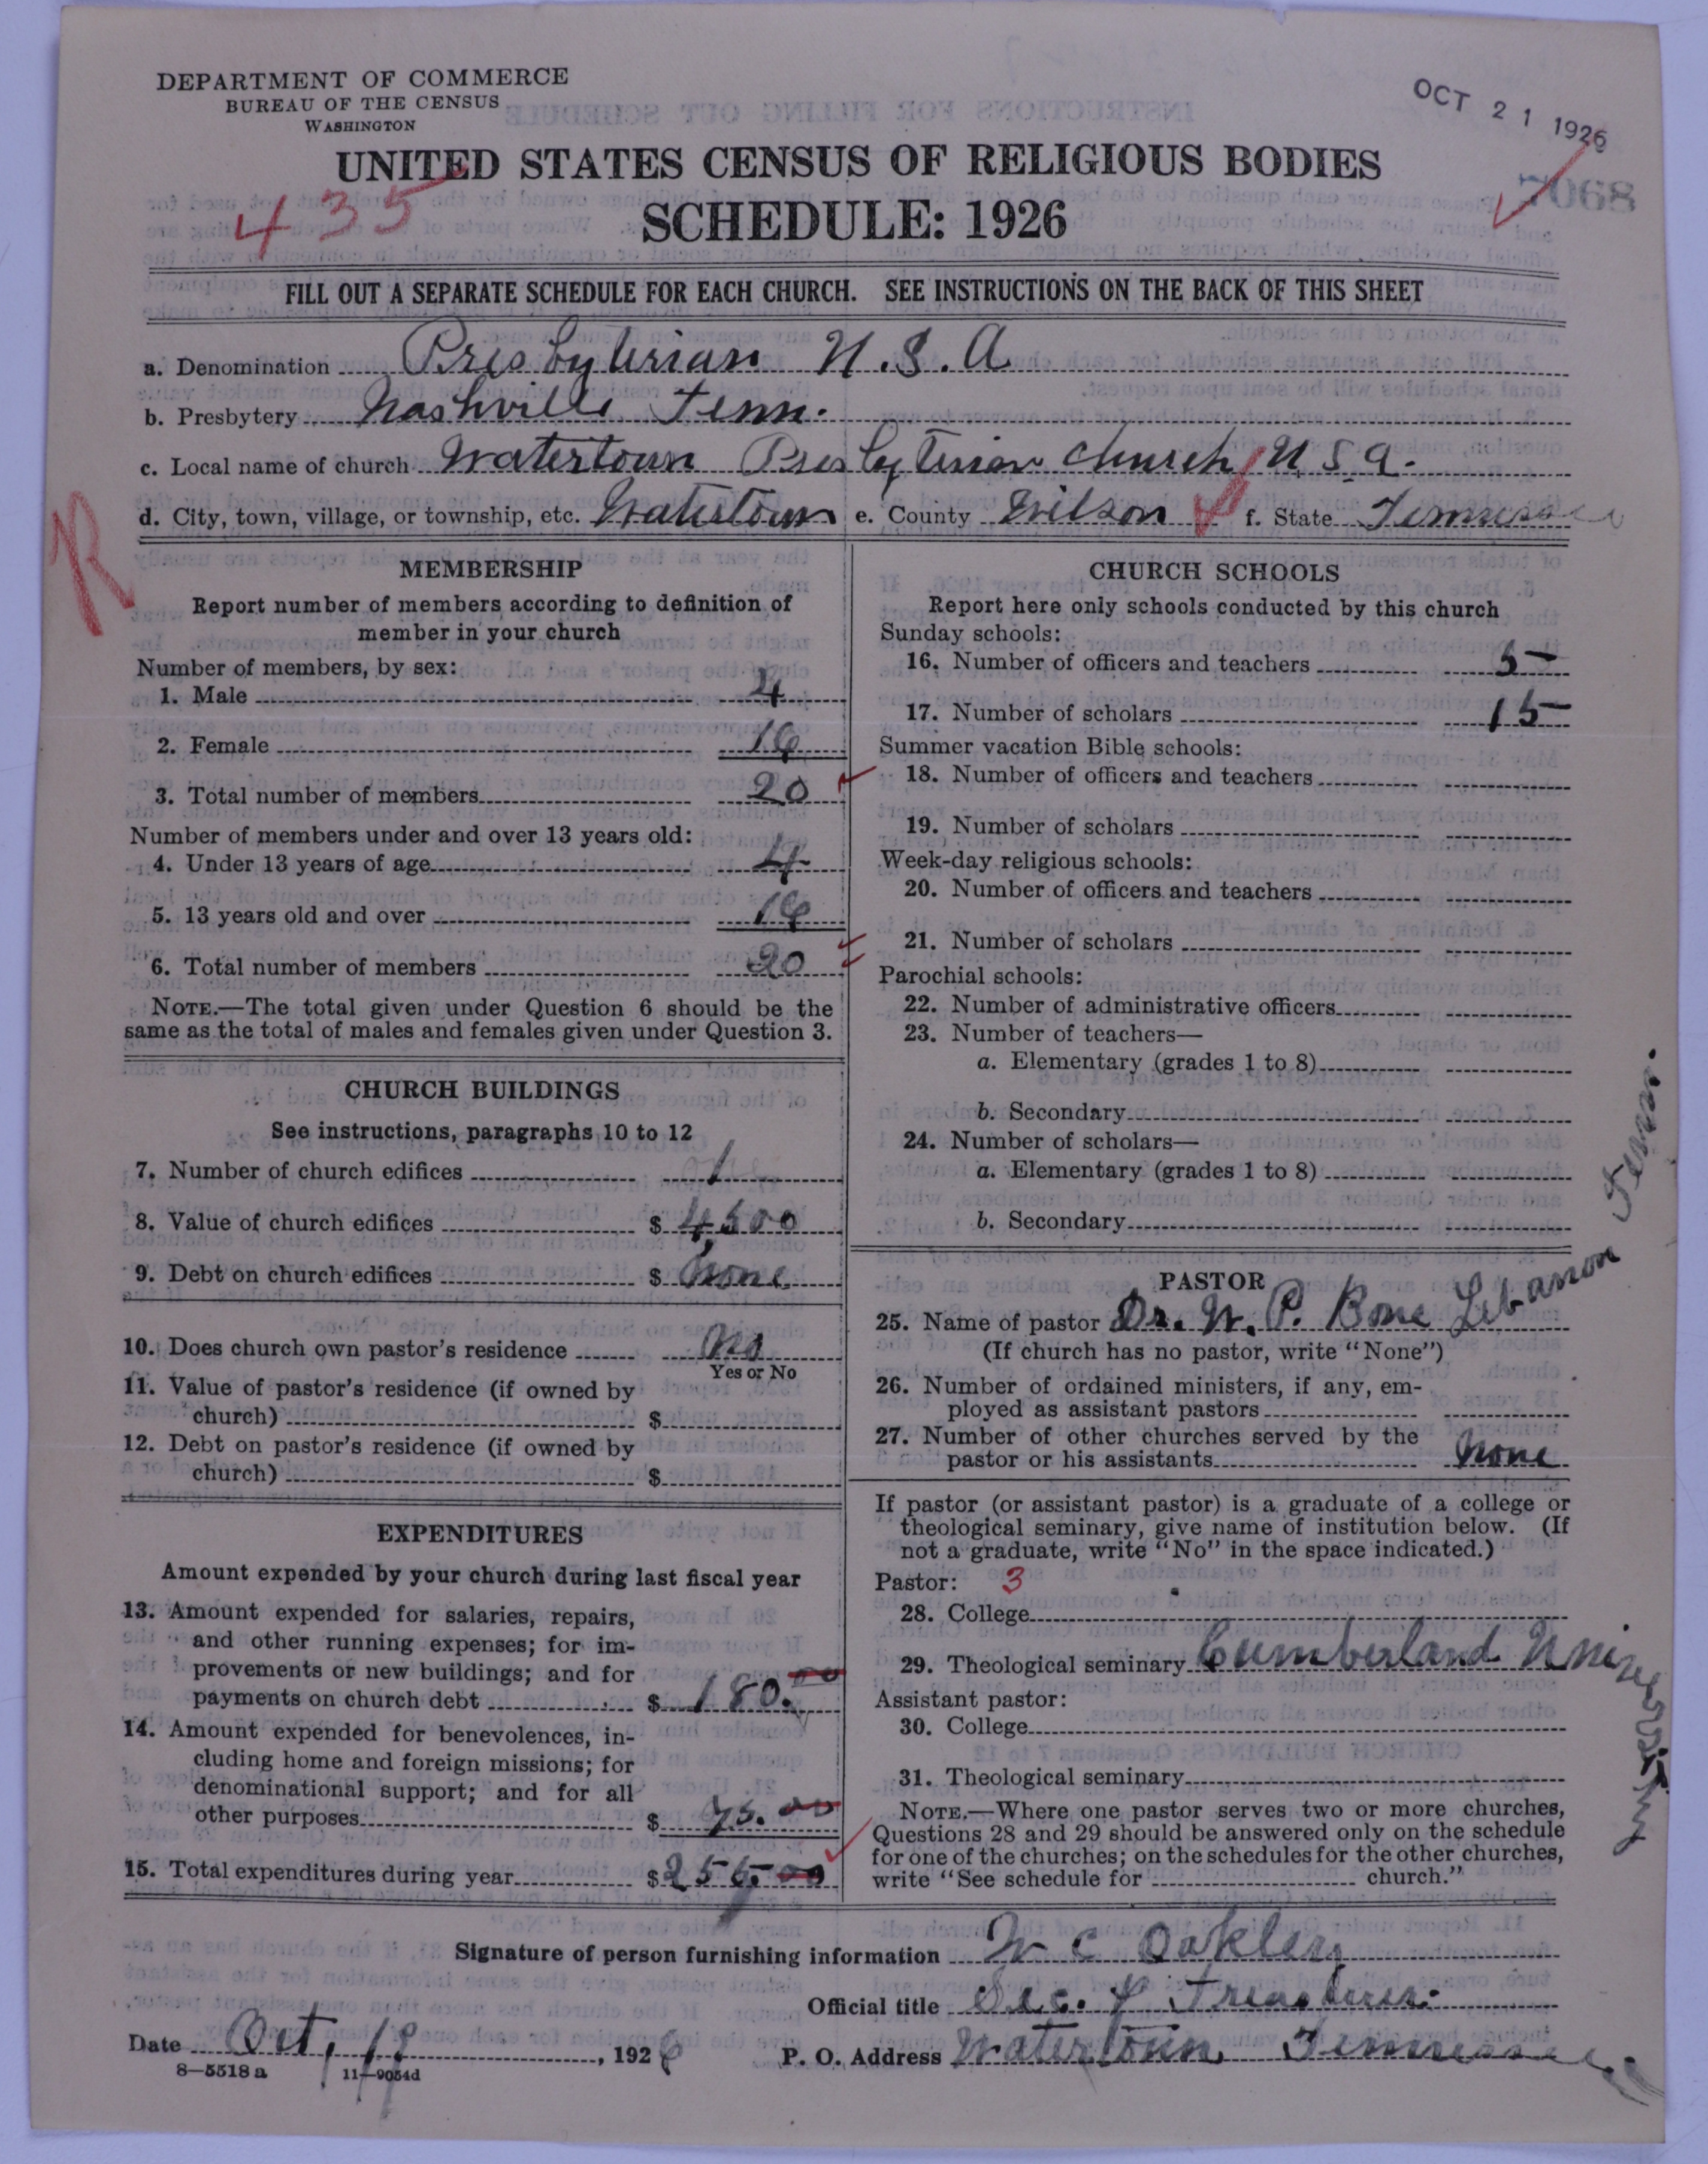 DEPARTMENT OF COMMERCE
BUREAU OF THE CENSUS
WASHINGTON
OCT 21 1926
UNITED STATES CENSUS OF RELIGIOUS BODIES
7068
435
SCHEDULE: 1926
FILL OUT A SEPARATE SCHEDULE FOR EACH CHURCH. SEE INSTRUCTIONS ON THE BACK OF THIS SHEET
a. Denomination Presbyterian U.S.A
b. Presbytery Nashville Tenn.
c. Local name of church Watertown Presbyterian Church U S a.
d. City, town, village, or township, etc. Watertown e. County Wilson f. State Tennessee
R
MEMBERSHIP
Report number of members according to definition of
member in your church
Number of members, by sex:
1. Male 4
2. Female 16
3. Total number of members 20
Number of members under and over 13 years old:
4. Under 13 years of age 4
5. 13 years old and over 16
6. Total number of members 20
NOTE.—The total given under Question 6 should be the
same as the total of males and females given under Question 3.
CHURCH BUILDINGS
See instructions, paragraphs 10 to 12
7. Number of church edifices 1
8. Value of church edifices $ 4,500
9. Debt on church edifices $ None
10. Does church own pastor's residence No
Yes or No
11. Value of pastor's residence (if owned by
church) $
12. Debt on pastor's residence (if owned by
church) $
EXPENDITURES
Amount expended by your church during last fiscal year
13. Amount expended for salaries, repairs,
and other running expenses; for im-
provements or new buildings; and for
payments on church debt $ 180.00
14. Amount expended for benevolences, in-
cluding home and foreign missions; for
denominational support; and for all
other purposes $ 75.00
15. Total expenditures during year $ 255.00
CHURCH SCHOOLS
Report here only schools conducted by this church
Sunday schools:
16. Number of officers and teachers 5
17. Number of scholars 15
Summer vacation Bible schools:
18. Number of officers and teachers
19. Number of scholars
Week-day religious schools:
20. Number of officers and teachers
21. Number of scholars
Parochial schools:
22. Number of administrative officers
23. Number of teachers—
a. Elementary (grades 1 to 8)
b. Secondary
24. Number of scholars—
a. Elementary (grades 1 to 8)
b. Secondary
PASTOR
25. Name of pastor Dr. W. P. Bone Lebanon Tenn.
(If church has no pastor, write "None")
26. Number of ordained ministers, if any, em-
ployed as assistant pastors
27. Number of other churches served by the
pastor or his assistants None
If pastor (or assistant pastor) is a graduate of a college or
theological seminary, give name of institution below. (If
not a graduate, write "No" in the space indicated.)
Pastor: 3
28. College
29. Theological seminary Cumberland University
Assistant pastor:
30. College
31. Theological seminary
NOTE.—Where one pastor serves two or more churches,
Questions 28 and 29 should be answered only on the schedule
for one of the churches; on the schedules for the other churches,
write "See schedule for church."
Signature of person furnishing information W C Oakley
Official title Sec. & Treasurer.
Date Oct, 19, 1926 P. O. Address Watertown Tennessee
8—5518 a 11—9054d